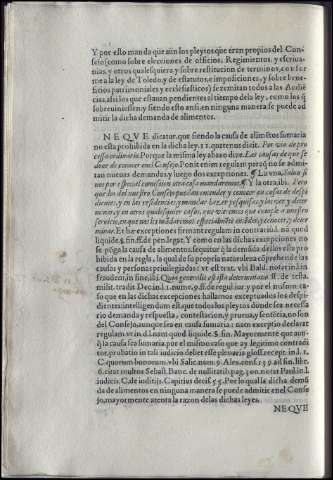 Y por esto manda que aun los pleytos que eran propios del Con-
sejo (como sobre elecciones de officios, Regimientos, y escriua-
nias, y otros qualesquiera, y sobre restitucion de terminos, confor-
me a la ley de Toledo, y de estatutos, e imposiciones, y sobre bene-
ficios patrimoniales y ecclesiasticos) se remitan todos a las Audié
cias, assi los que estauan pendientes al tiempo de la ley, como los q̃
sobreuiniessen, y siendo esto ansi, en ninguna manera se puede ad-
mitir la dicha demanda de alimentos.
NEQVE dicatur, que siendo la causa de alimẽtos sumaria
no esta prohibida en la dicha ley. 22. quatenus dicit. Por via de pro
cesso ordinario. Porque la mesma ley abaxo dize. Las causas de que se
deue de conocer en el Consejo. Ponit enim regulam per q̃ no se admi-
tan nueuas demandas, y luego dos excepciones. ¶ La vna, Salua si
nos por especial comission otra cosa mandaremos. ¶ Y la otra ibi. Pero
que los del nuestro Consejo puedan entender y conocer en cosas de
y en las residencias, y mandar hazer pesquisas, y las ver y deter
minar, y en otras qualesquier cosas, que vieremos que cumple a nuestro
seruicio, en que nos les mandaremos especialmente entender, y conocer, y deter
minar. Et hae exceptiones firmant regulam in contrariũ. nã quod
liquide, §. fin. ff. de pen. legat. Y como en las dichas excepciones no
se põga la causa de alimẽtos, sequitur q̃ la demãda dellos esta pro
hibida en la regla, la qual de su propria naturaleza comprehende
causas y personas priuilegiadas: vt est text. vbi Bald. notat in l. in
fraudem, in fine, ibi. Quae generaliter est determinatum. ff. de testa.
milit. tradit Decin. l. 1. nume. 9. ff. de regul. iur. y por el mismo ca-
so que en las dichas excepciones hallamos exceptuados los despi-
dientes: intelligendum est, que todos los pleytos donde sea necessa
rio demanda y respuesta, contestacion, y prueua, y sentẽcia, no son
del Consejo, aunque sea en causa sumaria: nam exceptio declarat
regulam vt in. d. l. nam quod liquide. §. fin. Mayormente que aun-
q̃ la causa sea sumaria, por el mismo caso que ay legitimo contradi
ctor, probatio in tali iudicio debet esse plenaria; gloss. recept. in l. 1.
C. quorum bonorum. vbi Salic. num. 9. Alex. cons. 139. ad fin. lib.
6. citat multos Sebast. Banc. de nullitatib. pag. 30. notat Paul. in l.
iudicis. C. de iudicijs. Capitius decis. 55. Por lo qual la dicha demã
da de alimentos en ninguna manera se puede admitir en el Conse
jo, mayormente atenta la razon de las dichas leyes.
NEQVE